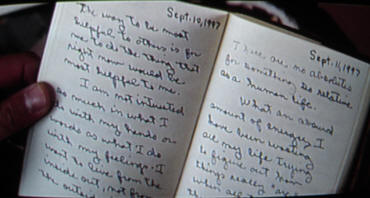 Sept. 10, 1997
The way to be most
helpful to others is for
me to do the thing that
right now would be
most helpful to me.
I am not interested
so much in what I
do with my hands or
words as what I do
with my feelings. I
want to live from the
inside out, not from
the outside
Sept. 11, 1997
There are no absolutes
for something so relative
as a human life.
What an absurd
amount of energy I
have been wasting
all my life trying
to figure out how
things really "are"
when all